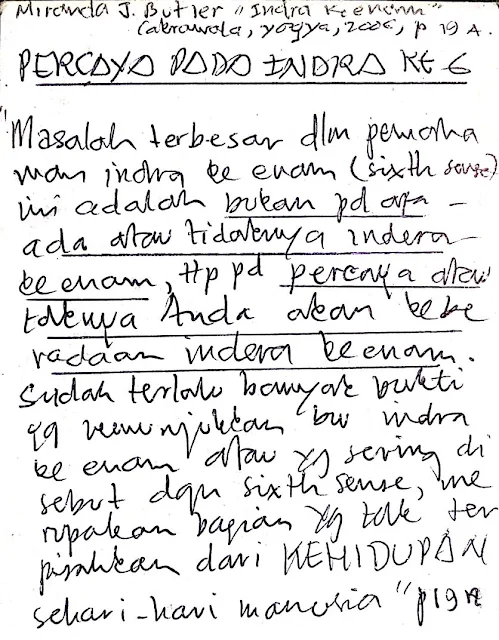 Miranda J. Butler "Indra Keenam"
Cakrawala, Yogya, 2006, p 19 A.
PERCAYA PADA INDRA KE 6
"Masalah terbesar dlm pemaha
man indra ke enam (sixth sense)
ini adalah bukan pd apa -
ada atau tidaknya indera
ke enam, ttp pd percaya atau
taknya Anda akan kebe
radaan indera keenam.
Sudah terlalu banyak bukti
yg menunjukkan bw indra
ke enam atau yg sering di
sebut dgn sixth sense, me
rupakan bagian yg tak ter
pisahkan dari KEHIDUPAN
sehari-hari manusia" p19A